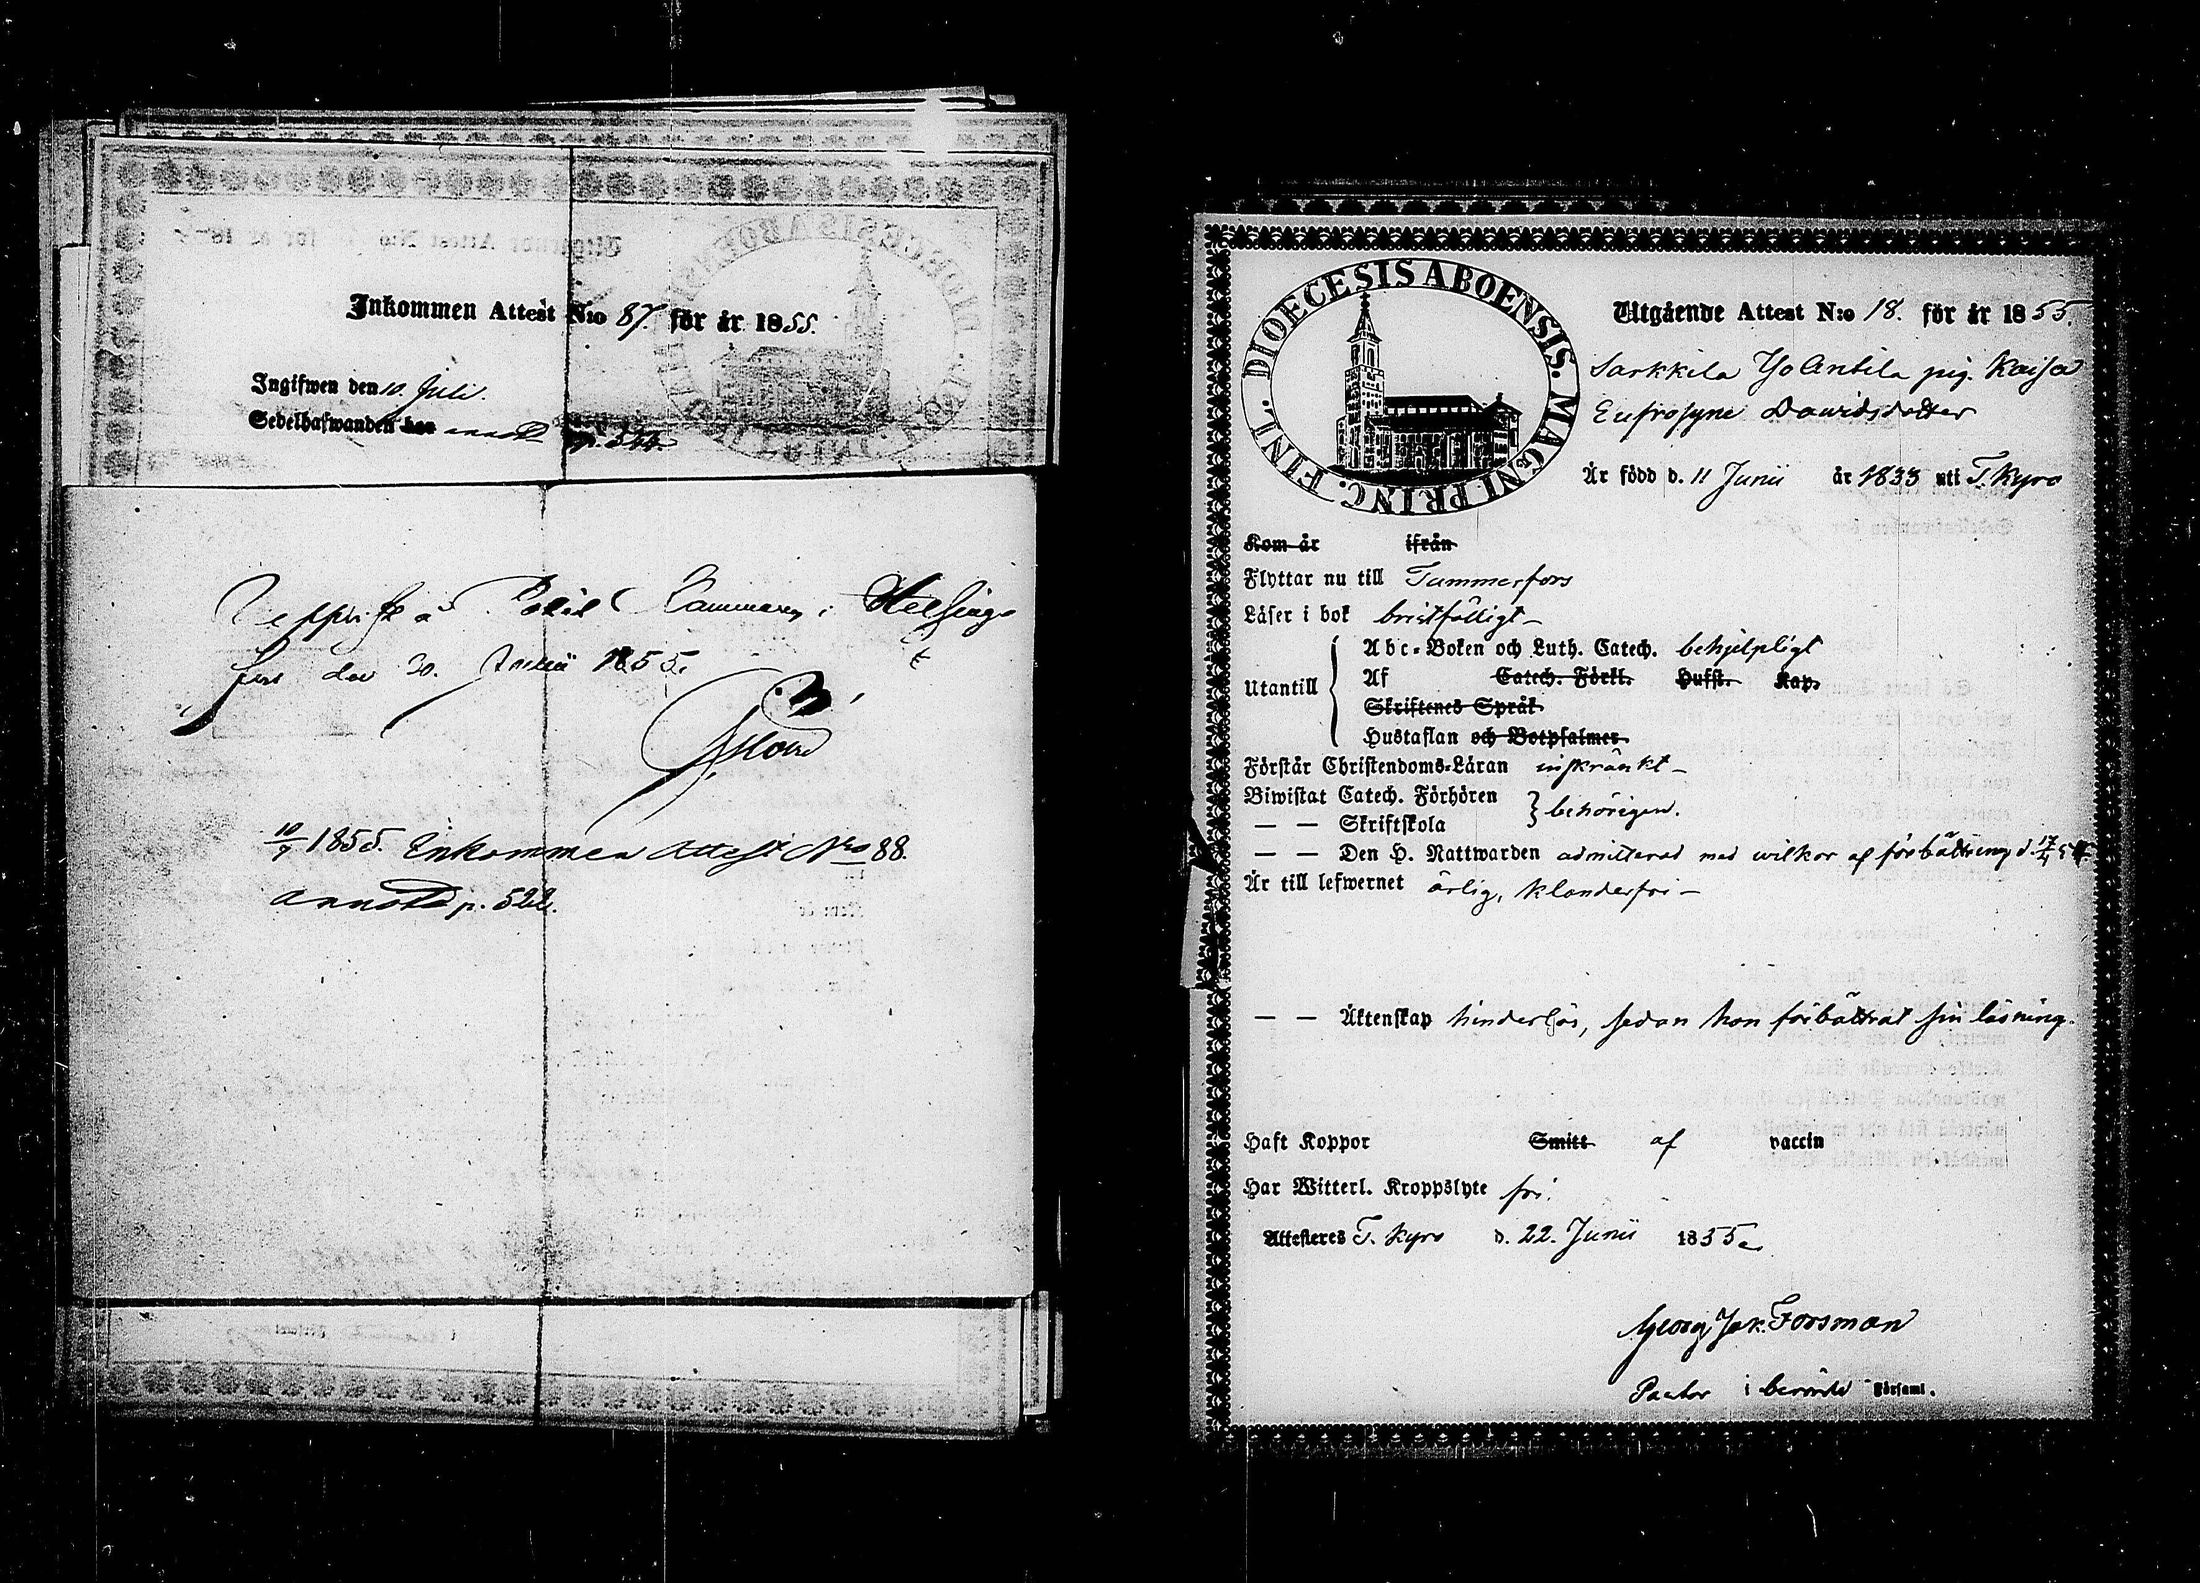 Inkommen Attest N:o 87. för år 1855.
Ingifwen den 10 Juli.
Sedelhafwanden annot. p.
Uppvist å Polis Kammaren i Helsing-
fors den 30. Junii 1855.
10/7 1855. Inkommen Attest N:o 88.
annot. p. 522.
DIOECESIS ABOENSIS. MAGNI PRINC. FINL.
Utgående Attest N:o 18. för år 1855.
Sarkkila Yso Antila pig. Kaisa
Eufrosyne Davidsdotter
Är född d. 11 Junii år 1833 uti T. Kyro
Kom år ifrån
Flyttar nu till Tammerfors
Läser i bok bristfälligt
Utantill
Abc-Boken och Luth. Catech. behjelpligt
Af Catech. Förkl. Hufst. Kap.
Skriftenes Språk
Hustaflan och Botpsalmer
Förstår Christendoms-Läran inskränkt
Biwistat Catech. Förhören
— — Skriftskola behörigen.
— — Den H. Nattwarden admitterad med wilkor af förbättring d. 17/4
Är till lefwernet ärlig, klanderfri
— — Äktenskap hinderlös, sedan hon förbättrat sin läsning.
Haft Koppor Smitt af vaccin
Har Witterl. Kroppslyte fri.
Attesteres T. Kyro d. 22. Junii 1855
Georg Jak. Forsman
Pastor i berörde Församl.